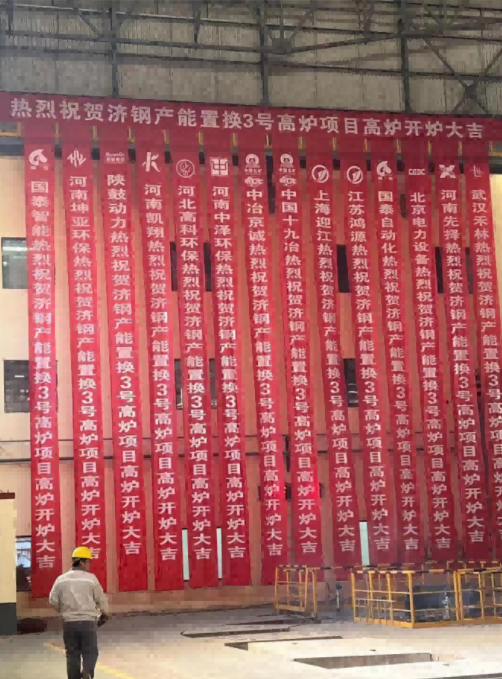 热烈祝贺济钢产能置换3号高炉项目高炉开炉大吉
国泰智能热烈祝贺济钢产能置换3号高炉项目高炉开炉大吉
河南坤亚环保热烈祝贺济钢产能置换3号高炉项目高炉开炉大吉
陕鼓动力热烈祝贺济钢产能置换3号高炉项目高炉开炉大吉
河南凯翔热烈祝贺济钢产能置换3号高炉项目高炉开炉大吉
河北高科环保热烈祝贺济钢产能置换3号高炉项目高炉开炉大吉
河南中泽环保热烈祝贺济钢产能置换3号高炉项目高炉开炉大吉
中冶京诚热烈祝贺济钢产能置换3号高炉项目高炉开炉大吉
中国十九冶热烈祝贺济钢产能置换3号高炉项目高炉开炉大吉
上海迎江热烈祝贺济钢产能置换3号高炉项目高炉开炉大吉
江苏鸿源热烈祝贺济钢产能置换3号高炉项目高炉开炉大吉
国泰自动化热烈祝贺济钢产能置换3号高炉项目高炉开炉大吉
北京电力设备热烈祝贺济钢产能置换3号高炉项目高炉开炉大吉
河南先择热烈祝贺济钢产能置换3号高炉项目高炉开炉大吉
武汉禾林热烈祝贺济钢产能置换3号高炉项目高炉开炉大吉